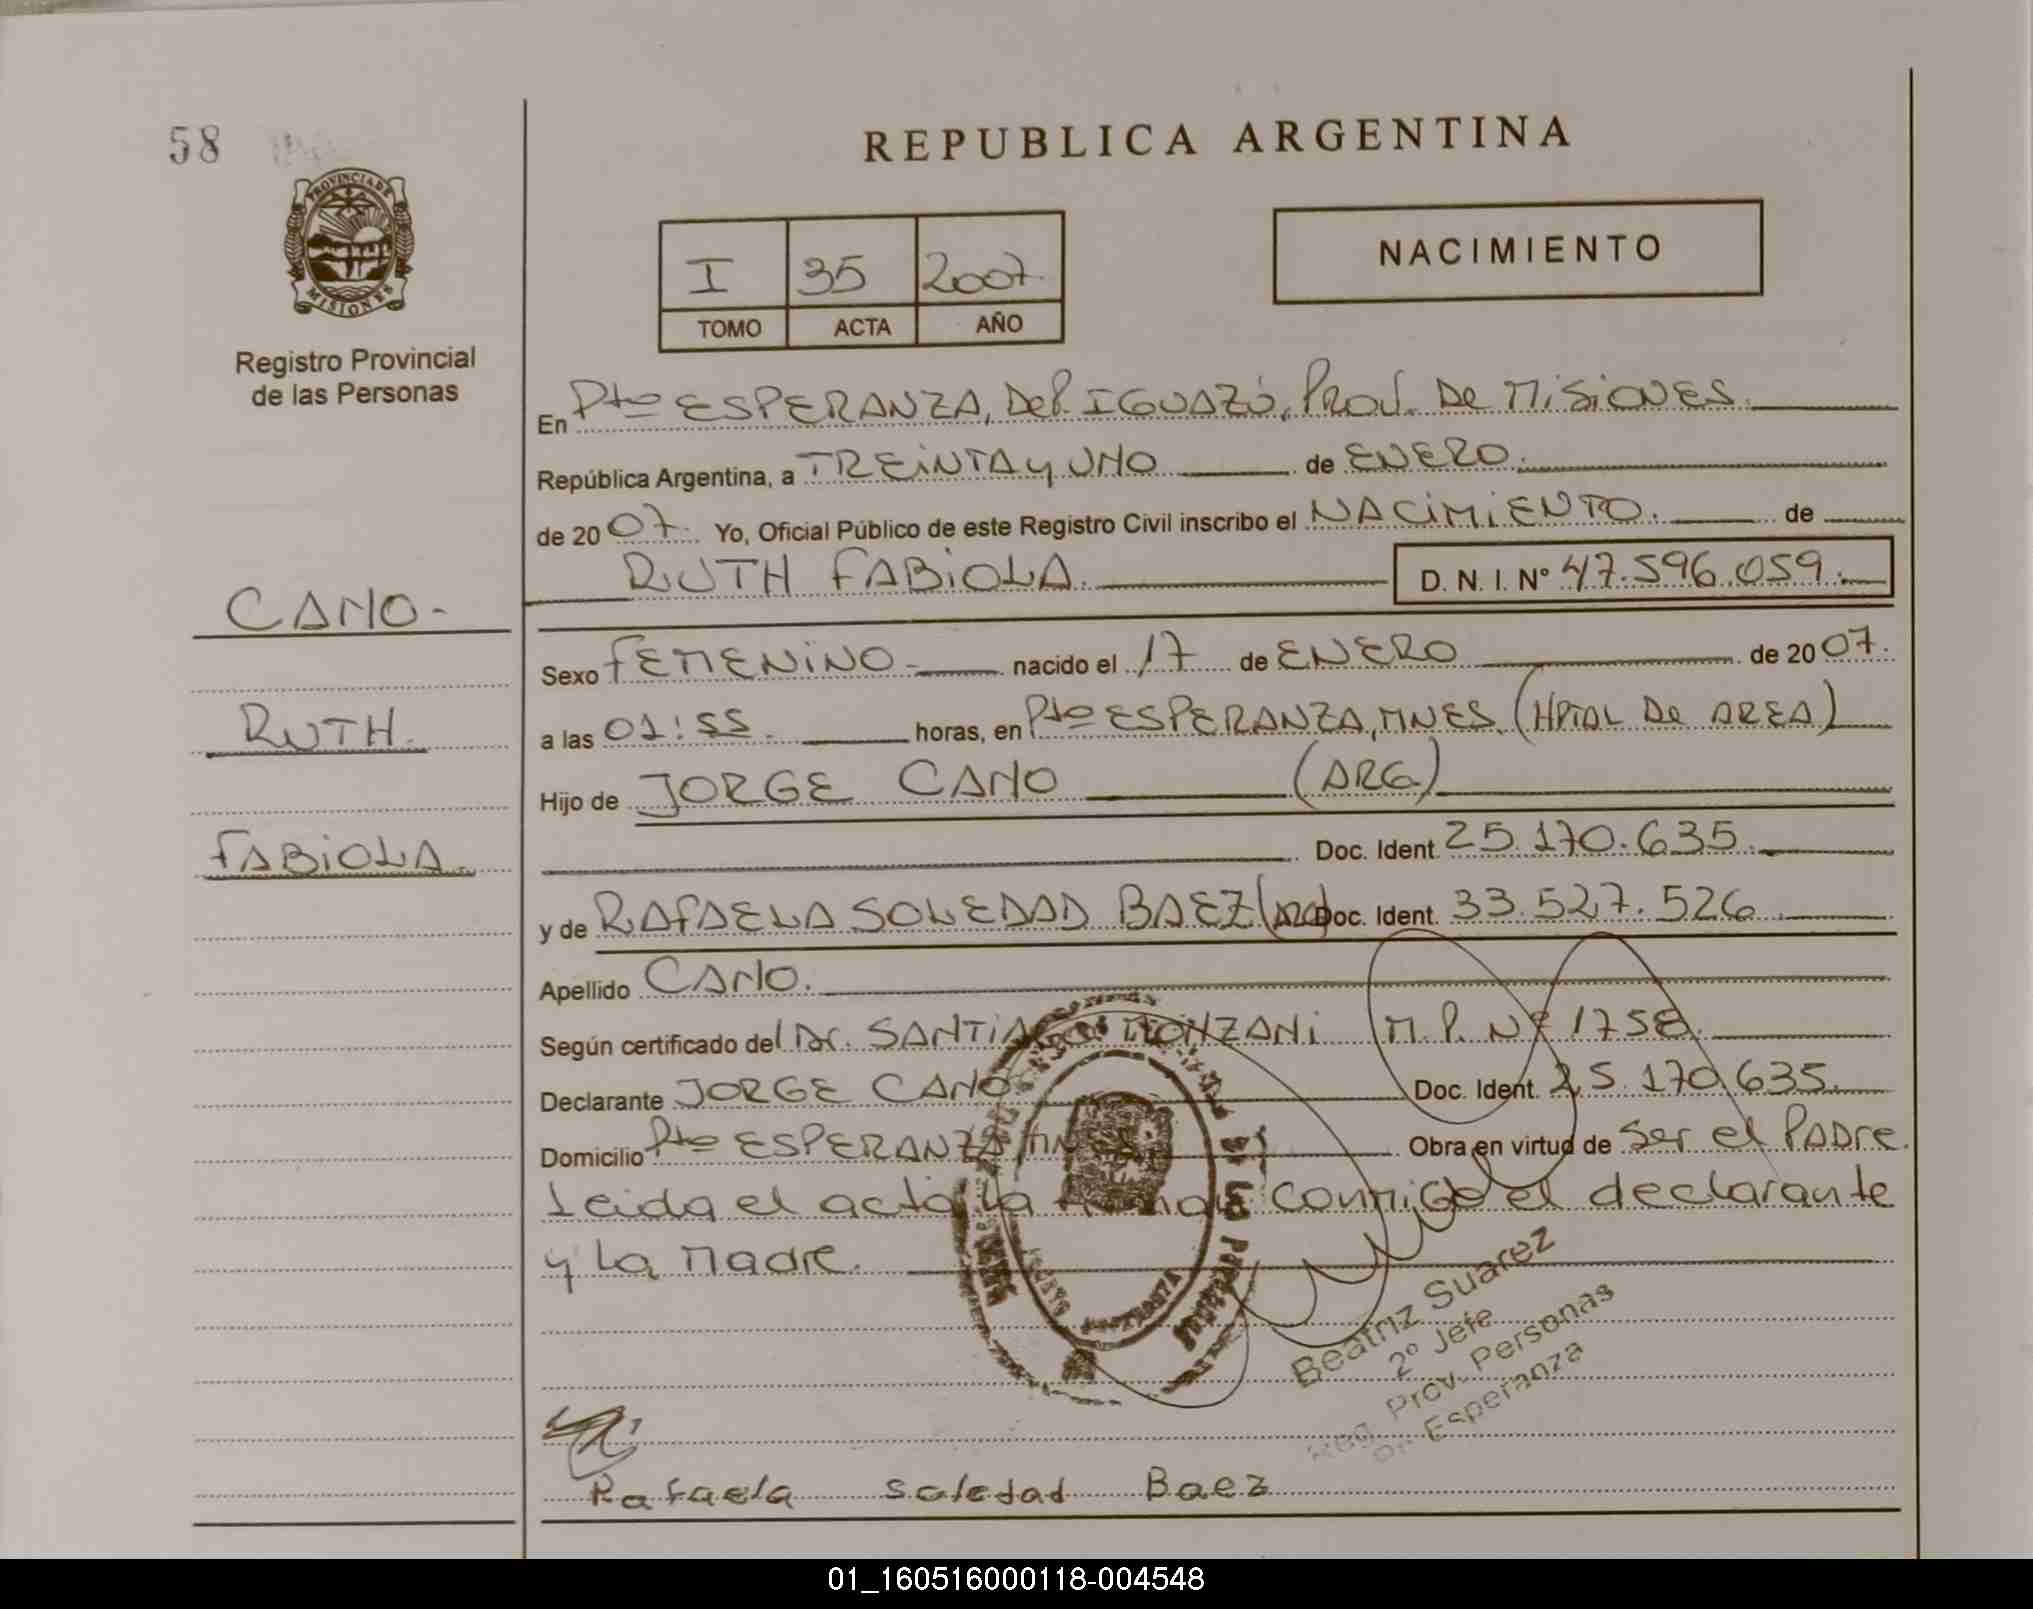 58
PROVINCIA DE
MISIONES
Registro Provincial
de las Personas
CANO.-
RUTH.
FABIOLA.
REPUBLICA ARGENTINA
I 35 2007.
TOMO ACTA AÑO
NACIMIENTO
En Pto ESPERANZA, Dep. IGUAZÚ, Prov. De MiSiONES.
República Argentina, a TREiNTA y UNO de ENERO.
de 2007. Yo, Oficial Público de este Registro Civil inscribo el NACiMiENTO. de
RUTH FABiOLA. D. N. I. Nº 47.596.059.
Sexo FEMENiNO. nacido el 17 de ENERO de 2007.
a las 01:55. horas, en Pto ESPERANZA, MNES. (HPTAL De AREA)
Hijo de JORGE CANO (ARG.)
Doc. Ident. 25.170.635.
y de RAFAELA SOLEDAD BAEZ (ARG) Doc. Ident. 33.527.526
Apellido CANO.
Según certificado del Dr. SANTIAGO MONZANi M.P. Nº 1758.
Declarante JORGE CANO Doc. Ident. 25.170.635.
Domicilio Pto ESPERANZA, MNES. Obra en virtud de Ser el PADre.
Leida el acta, la firman conmigo el declarante
y La Madre.
Beatriz Suarez
2º Jefe
Reg. Prov. Personas
Pto Esperanza
Rafaela Soledad Baez
01_160516000118-004548